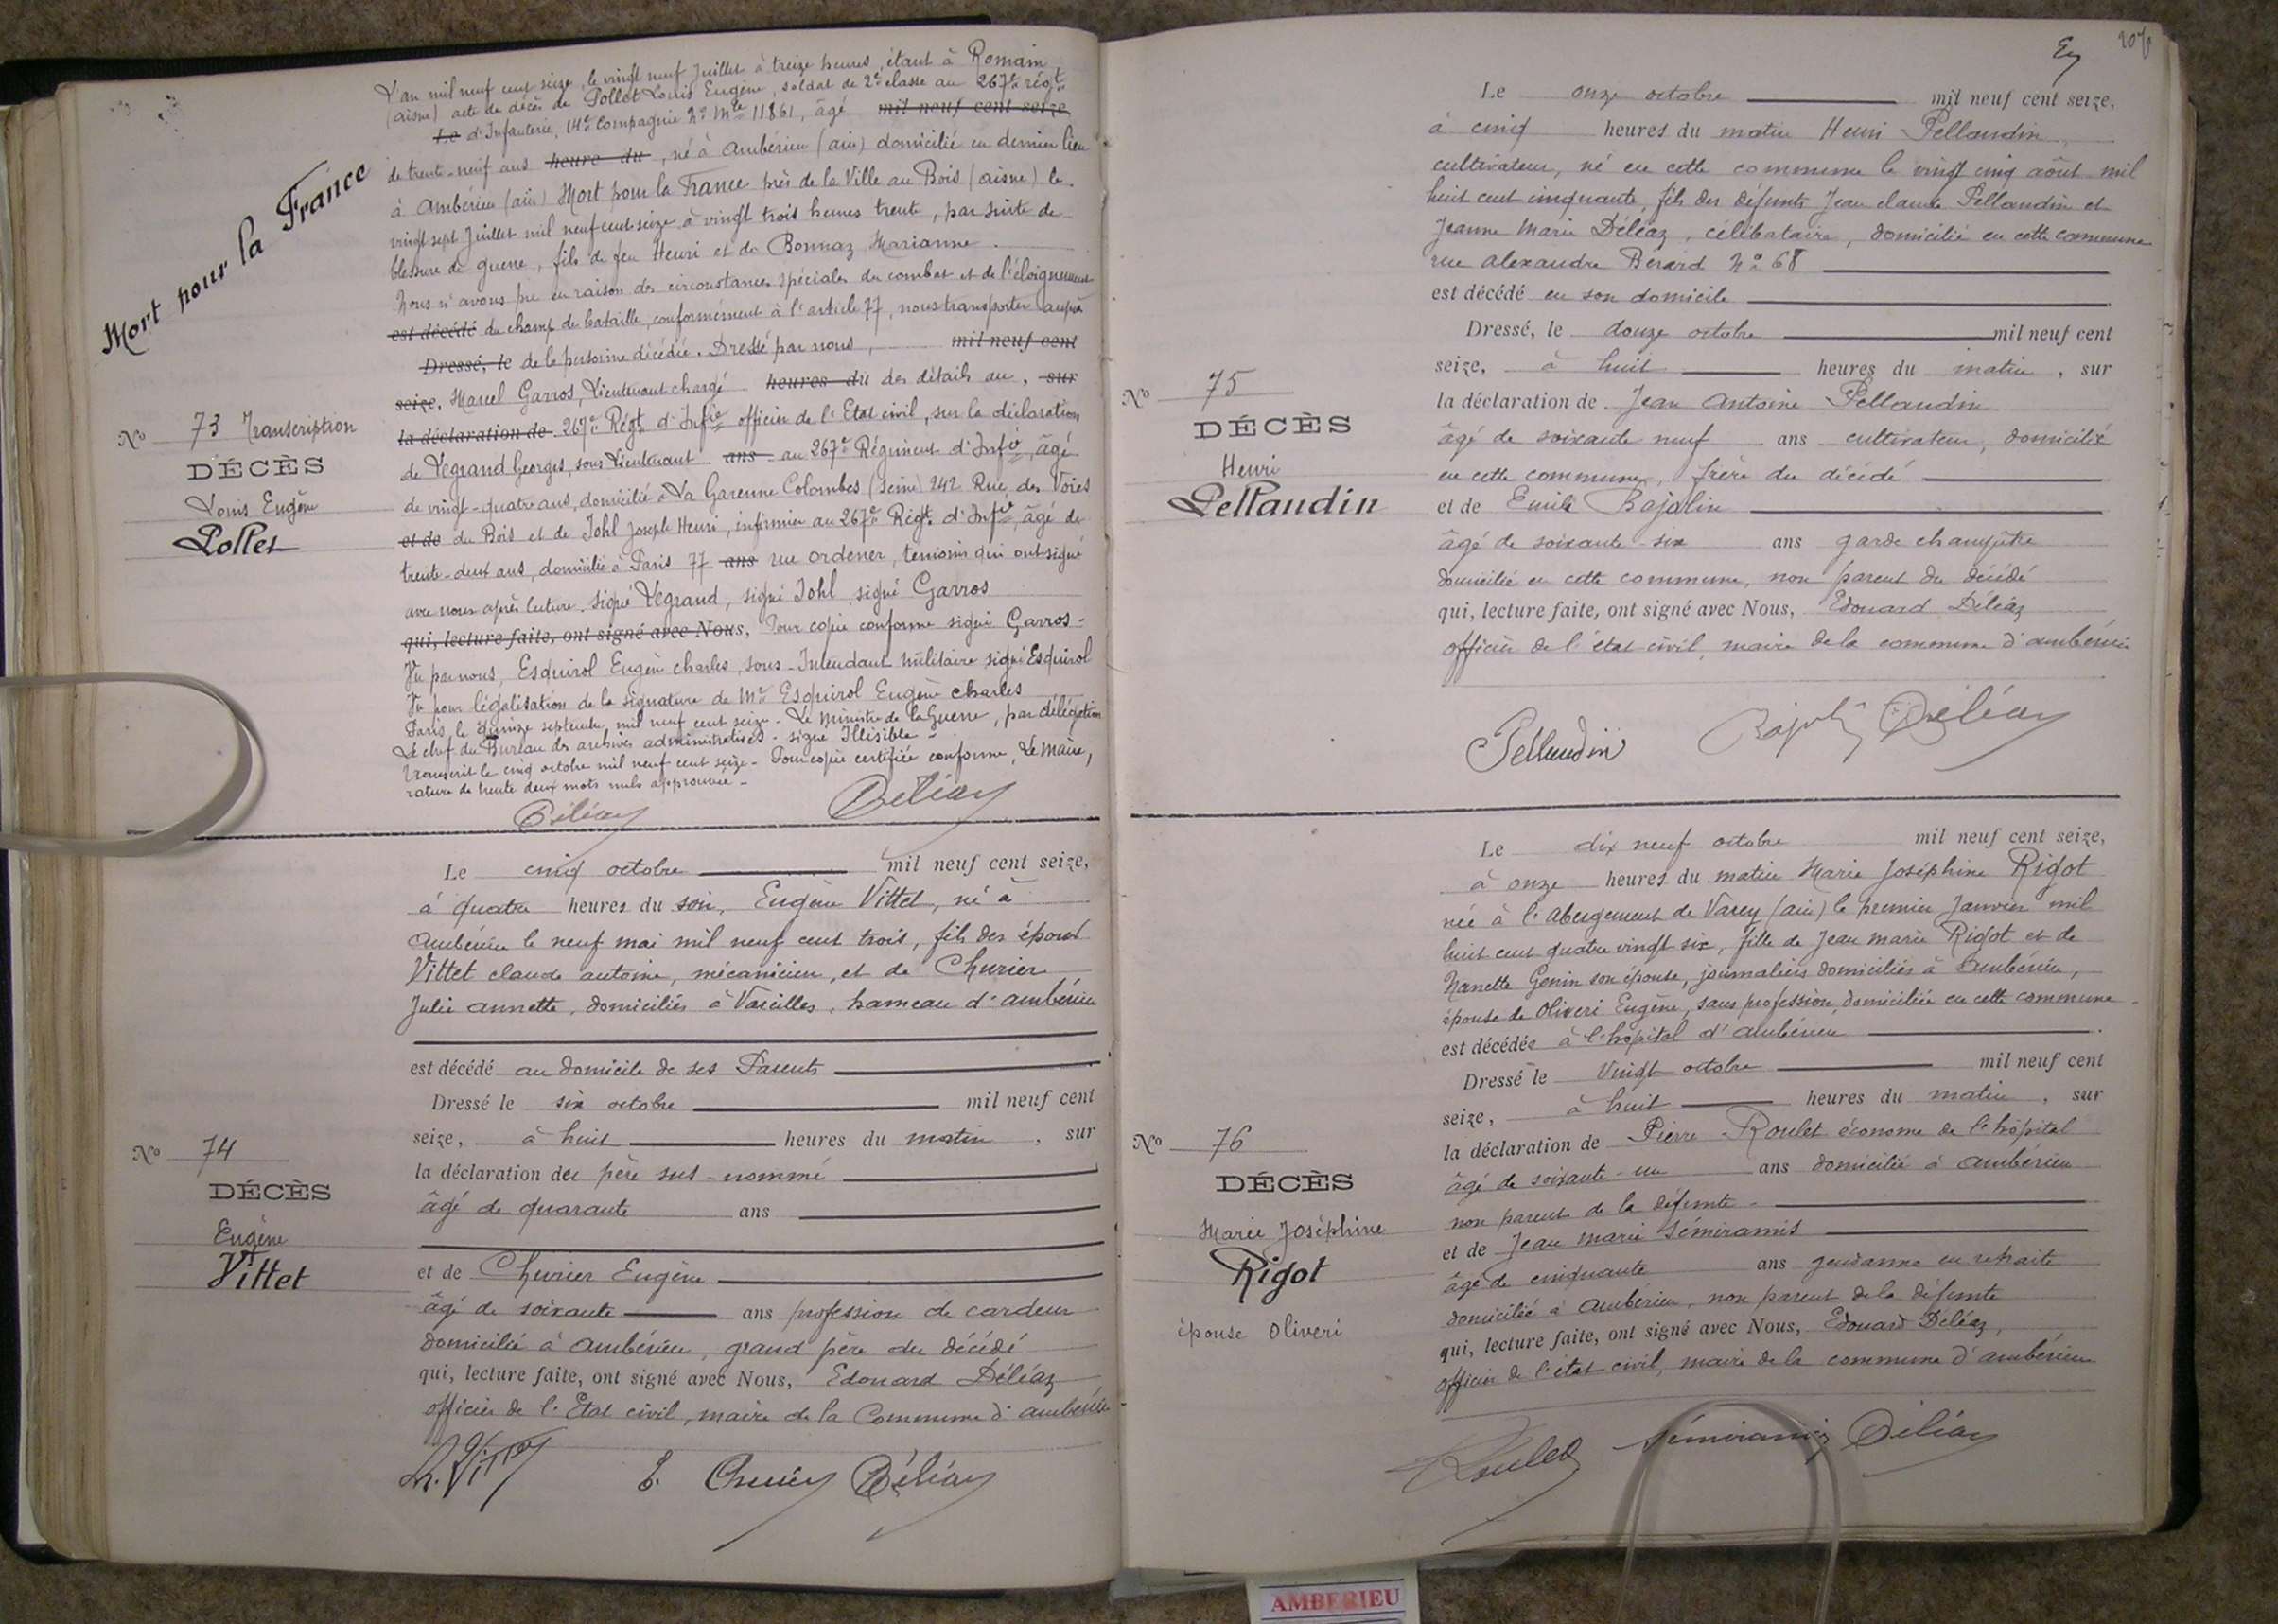 L'an mil neuf cent seize, le vingt neuf Juillet à treize heures, étant à Romain
(aisne) acte de décès de Pollet Louis Eugène, soldat de 2e classe au 267e régt
Le d'Infanterie, 14e Compagnie No Mle 11861, âgé mil neuf cent seize
de trente-neuf ans heure du, né à Ambérieu (ain) domicilié en dernier lieu
à Ambérieu (ain) Mort pour la France près de la Ville au Bois (aisne) le
vingt sept Juillet mil neuf cent seize à vingt trois heures trente, par suite de
blessure de guerre, fils de feu Henri et de Bonnaz Marianne.
Nous n'avons pu en raison des circonstances spéciales du combat et de l'éloignement
est décédé du champ de bataille, conformément à l'article 77, nous transporter auprès
Dressé, le de la personne décédée. Dressé par nous, mil neuf cent
seize, Marcel Garros, Lieutenant chargé heures du des détails au, sur
la déclaration de 267e Régt d'Infie officier de l'Etat civil, sur la déclaration
de Legrand Georges, sous Lieutenant ans au 267e Régiment d'Infie, âgé
de vingt-quatre ans, domicilié à La Garenne Colombes (Seine) 242 Rue des Voies
et de du Bois et de Johl Joseph Henri, infirmier au 267e Régt d'Infie, âgé de
trente-deux ans, domicilié à Paris 77 ans rue ordener, témoins qui ont signé
avec nous après lecture. signé Legrand, signé Johl signé Garros
qui, lecture faite, ont signé avec Nous, Pour copie conforme signé Garros -
Vu par nous, Esquirol Eugène charles, sous-Intendant militaire signé Esquirol
Vu pour légalisation de la signature de Mr Esquirol Eugène charles
Paris, le quinze septembre mil neuf cent seize - Le ministre de la Guerre, par délégation
Le chef du Bureau des archives administratives - signé Illisible -
Transcrit le cinq octobre mil neuf cent seize - Pour copie certifiée conforme, Le Maire,
rature de trente deux mots nuls approuvée -
Déléaz Déléaz
Mort pour la France
No 73 Transcription
DÉCÈS
Louis Eugène
Pollet
Le cinq octobre mil neuf cent seize,
à quatre heures du soir, Eugène Vittet, né à
Ambérieu le neuf mai mil neuf cent trois, fils des époux
Vittet claude antoine, mécanicien, et de Churier
Julie annette, domiciliés à Vareilles, hameau d'ambérieu
est décédé au domicile de ses Parents
Dressé le six octobre mil neuf cent
seize, à huit heures du matin, sur
la déclaration du père sus-nommé
âgé de quarante ans
et de Churier Eugène
âgé de soixante ans profession de cardeur
domicilié à Ambérieu, grand père du décédé
qui, lecture faite, ont signé avec Nous, Edouard Déléaz
officier de l'Etat civil, maire de la Commune d'ambérieu
No 74
DÉCÈS
Eugène
Vittet
E. Churier Déléaz
Ey 207
Le onze octobre mil neuf cent seize,
à cinq heures du matin Henri Pellaudin
cultivateur, né en cette commune le vingt cinq août mil
huit cent cinquante, fils des défunts Jean claude Pellaudin et
Jeanne Marie Déléaz, célibataire, domicilié en cette commune
rue Alexandre Bérard No 68
est décédé en son domicile
Dressé, le douze octobre mil neuf cent
seize, à huit heures du matin, sur
la déclaration de Jean Antoine Pellaudin
âgé de soixante neuf ans cultivateur, domicilié
en cette commune, frère du décédé
et de Emile Bajolin
âgé de soixante-six ans garde champêtre
domicilié en cette commune, non parent du décédé
qui, lecture faite, ont signé avec Nous, Edouard Déléaz
officier de l'état civil, maire de la commune d'ambérieu
No 75
DÉCÈS
Henri
Pellaudin
Pellaudin Bajolin Déléaz
Le dix neuf octobre mil neuf cent seize,
à onze heures du matin Marie Joséphine Rigot
née à l'Abergement de Varey (ain) le premier Janvier mil
huit cent quatre vingt six, fille de Jean marie Rigot et de
Nanette Genin son épouse, journaliers domiciliés à Ambérieu,
épouse de Oliveri Eugène, sans profession, domiciliée en cette commune
est décédée à l'hôpital d'Ambérieu
Dressé le Vingt octobre mil neuf cent
seize, à huit heures du matin, sur
la déclaration de Pierre Roulet économe de l'hôpital
âgé de soixante-un ans domicilié à Ambérieu
non parent de la défunte
et de Jean marie Sémiramis
âgé de cinquante ans gendarme en retraite
domicilié à Ambérieu, non parent de la défunte
qui, lecture faite, ont signé avec Nous, Edouard Déléaz,
officier de l'état civil, maire de la commune d'ambérieu
No 76
DÉCÈS
Marie Joséphine
Rigot
épouse Oliveri
Roulet Sémiramis Déléaz
AMBERIEU